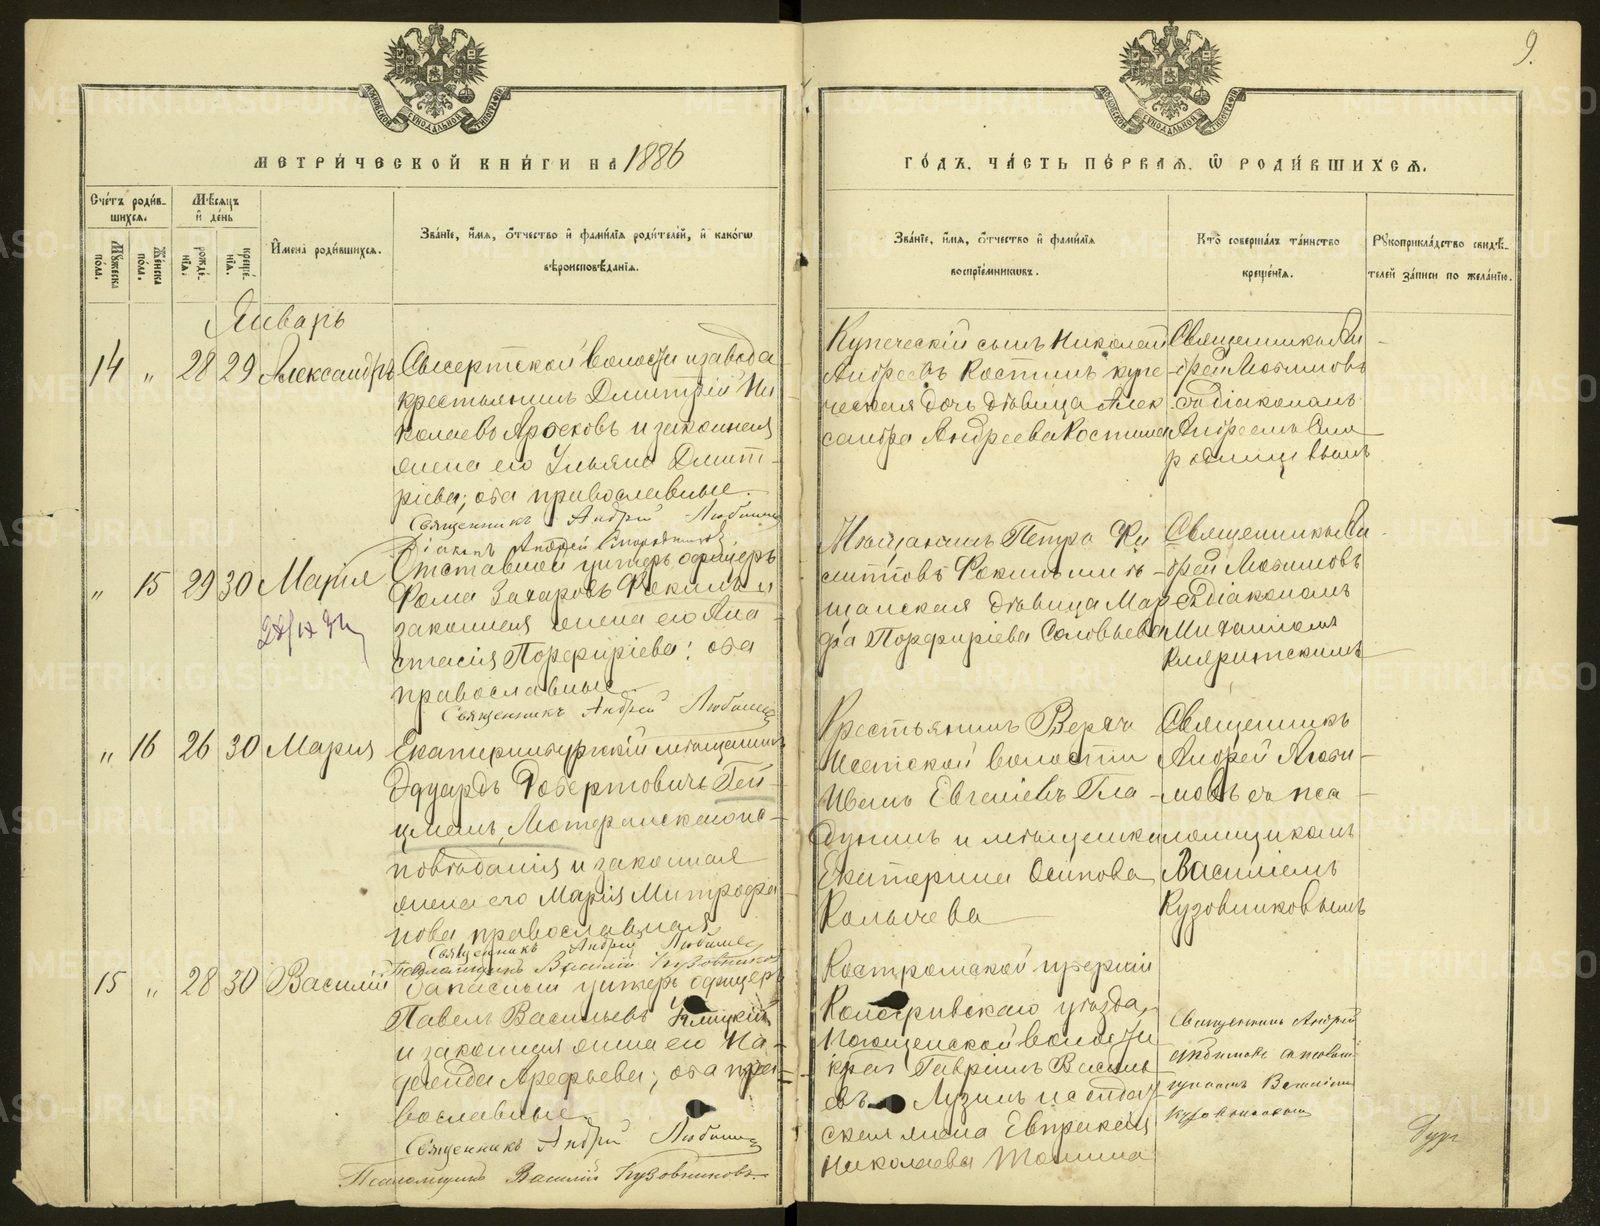 9.
МЕТРИ́ЧЕСКОЙ КНИ́ГИ НА 1886
ГО́ДЪ, ЧА́СТЬ ПЕ́РВАЯ, Ѡ РОДИ́ВШИХСЯ.
Сче́тъ роди́в-
шихся.
Му́жеска
по́ла.
Же́нска
по́ла.
Мѣ́сяцъ
и де́нь
рожде́-
нія.
креще́-
нія.
Имена роди́вшихся.
Зва́ніе, и́мя, о́тчество и фами́лія роди́телей, и како́гѡ
вѣроисповѣ́данія.
Зва́ніе, и́мя, о́тчество и фами́лія
воспріе́мникѡвъ.
Кто̀ соверша́лъ та́инство
креще́нія.
Рꙋкоприкла́дство свидѣ́-
телей за́писи по жела́нію.
Январь
14 „ 28 29 Александръ
Сысертской волости и завода
крестьянинъ Дмитрій Ни
колаевъ и законная
жена его Ульяна Дмит-
ріева; оба православные.
Священникъ Андрей Любимов
Діаконъ Андрей
Купеческій сынъ Николай
Андреевъ Костинъ купе
ческая дочь дѣвица Алек
сандра Андреева Костина
Священникъ Ан-
дрей Любимовъ
съ діакономъ
Андреемъ
„ 15 29 30 Марія
Отставной унтеръ офицеръ
Фома Захаровъ Фокинъ и
законная жена его Ана
стасія Порфиріева; оба
православные.
Священникъ Андрей Любимов
Мѣщанинъ Петръ
Фокинъ и мѣ-
щанская дѣвица Мар
фа Порфиріева Соловьева
Священникъ Ан-
дрей Любимовъ
съ діакономъ
Михаиломъ
„ 16 26 30 Марія
Екатеринбургскій мѣщанинъ
Эдуардъ Робертовичъ Гей-
цманъ, Лютеранскаго ис-
повѣданія и законная
жена его Марія Митрофа
нова православная
Священникъ Андрей Любимов
Псаломщикъ Василій Кузовников
Крестьянинъ Верхъ
Исетской волости
Иванъ Евгеніевъ Гла-
дунинъ и мѣщанка
Екатерина Осипова
Калычева
Священникъ
Андрей Люби-
мовъ съ пса-
ломщикомъ
Василіемъ
Кузовниковымъ
15 „ 28 30 Василій
Запасный унтеръ офицеръ
Павелъ Васильевъ
и законная жена его На-
дежда Арефьева; оба пра-
вославные.
Священникъ Андрей Любимов
Псаломщикъ Василій Кузовниковъ
Костромской губерніи
Кологривскаго уѣзда,
волости
крес Гавріилъ Василь
евъ Лузинъ и солдат
ская жена Евпраксія
Николаева
Священникъ Андрей
Любимовъ съ псалом-
щикомъ Василіемъ
Кузовниковымъ